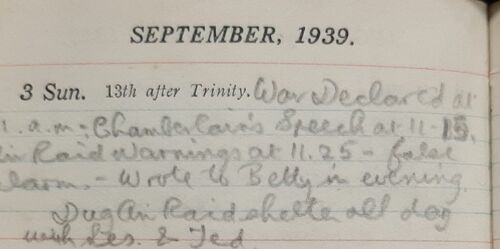 SEPTEMBER, 1939.
3 Sun. 13th after Trinity. War Declared at
1. a.m; Chamberlain's Speech at 11-15.
in Raid Warnings at 11.25 - false
larm. - Wrote to Betty in evening.
Dug Air Raid shelte all day
with Les. & Ted